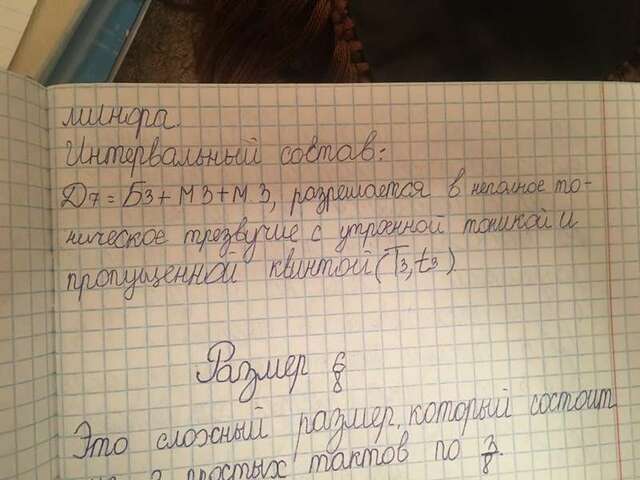 минора.
Интервальный состав:
Д7 = Б3 + М3 + М3, разрешается в неполное то-
ническое трезвучие с утроенной тоникой и
пропущенной квинтой. (Т3, t3)
Размер 6/8
Это сложный размер, который состоит
из 2 простых тактов по 3/8.